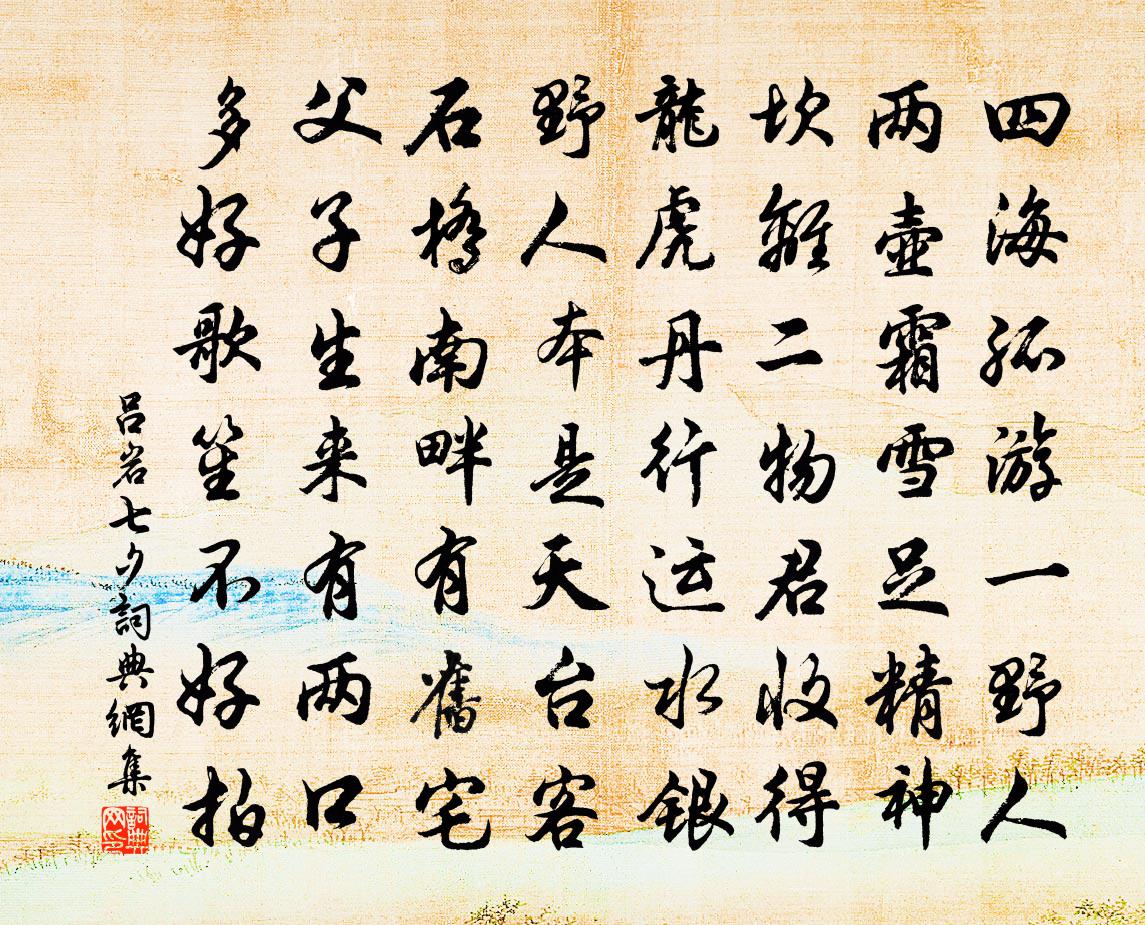 四海孤游一野人
两壶霜雪足精神
坎離二物君收得
龍虎丹行运水銀
野人本是天台客
石橋南畔有舊宅
父子生来有两口
多好歌笙不好拍
吕岩七夕詞典網集